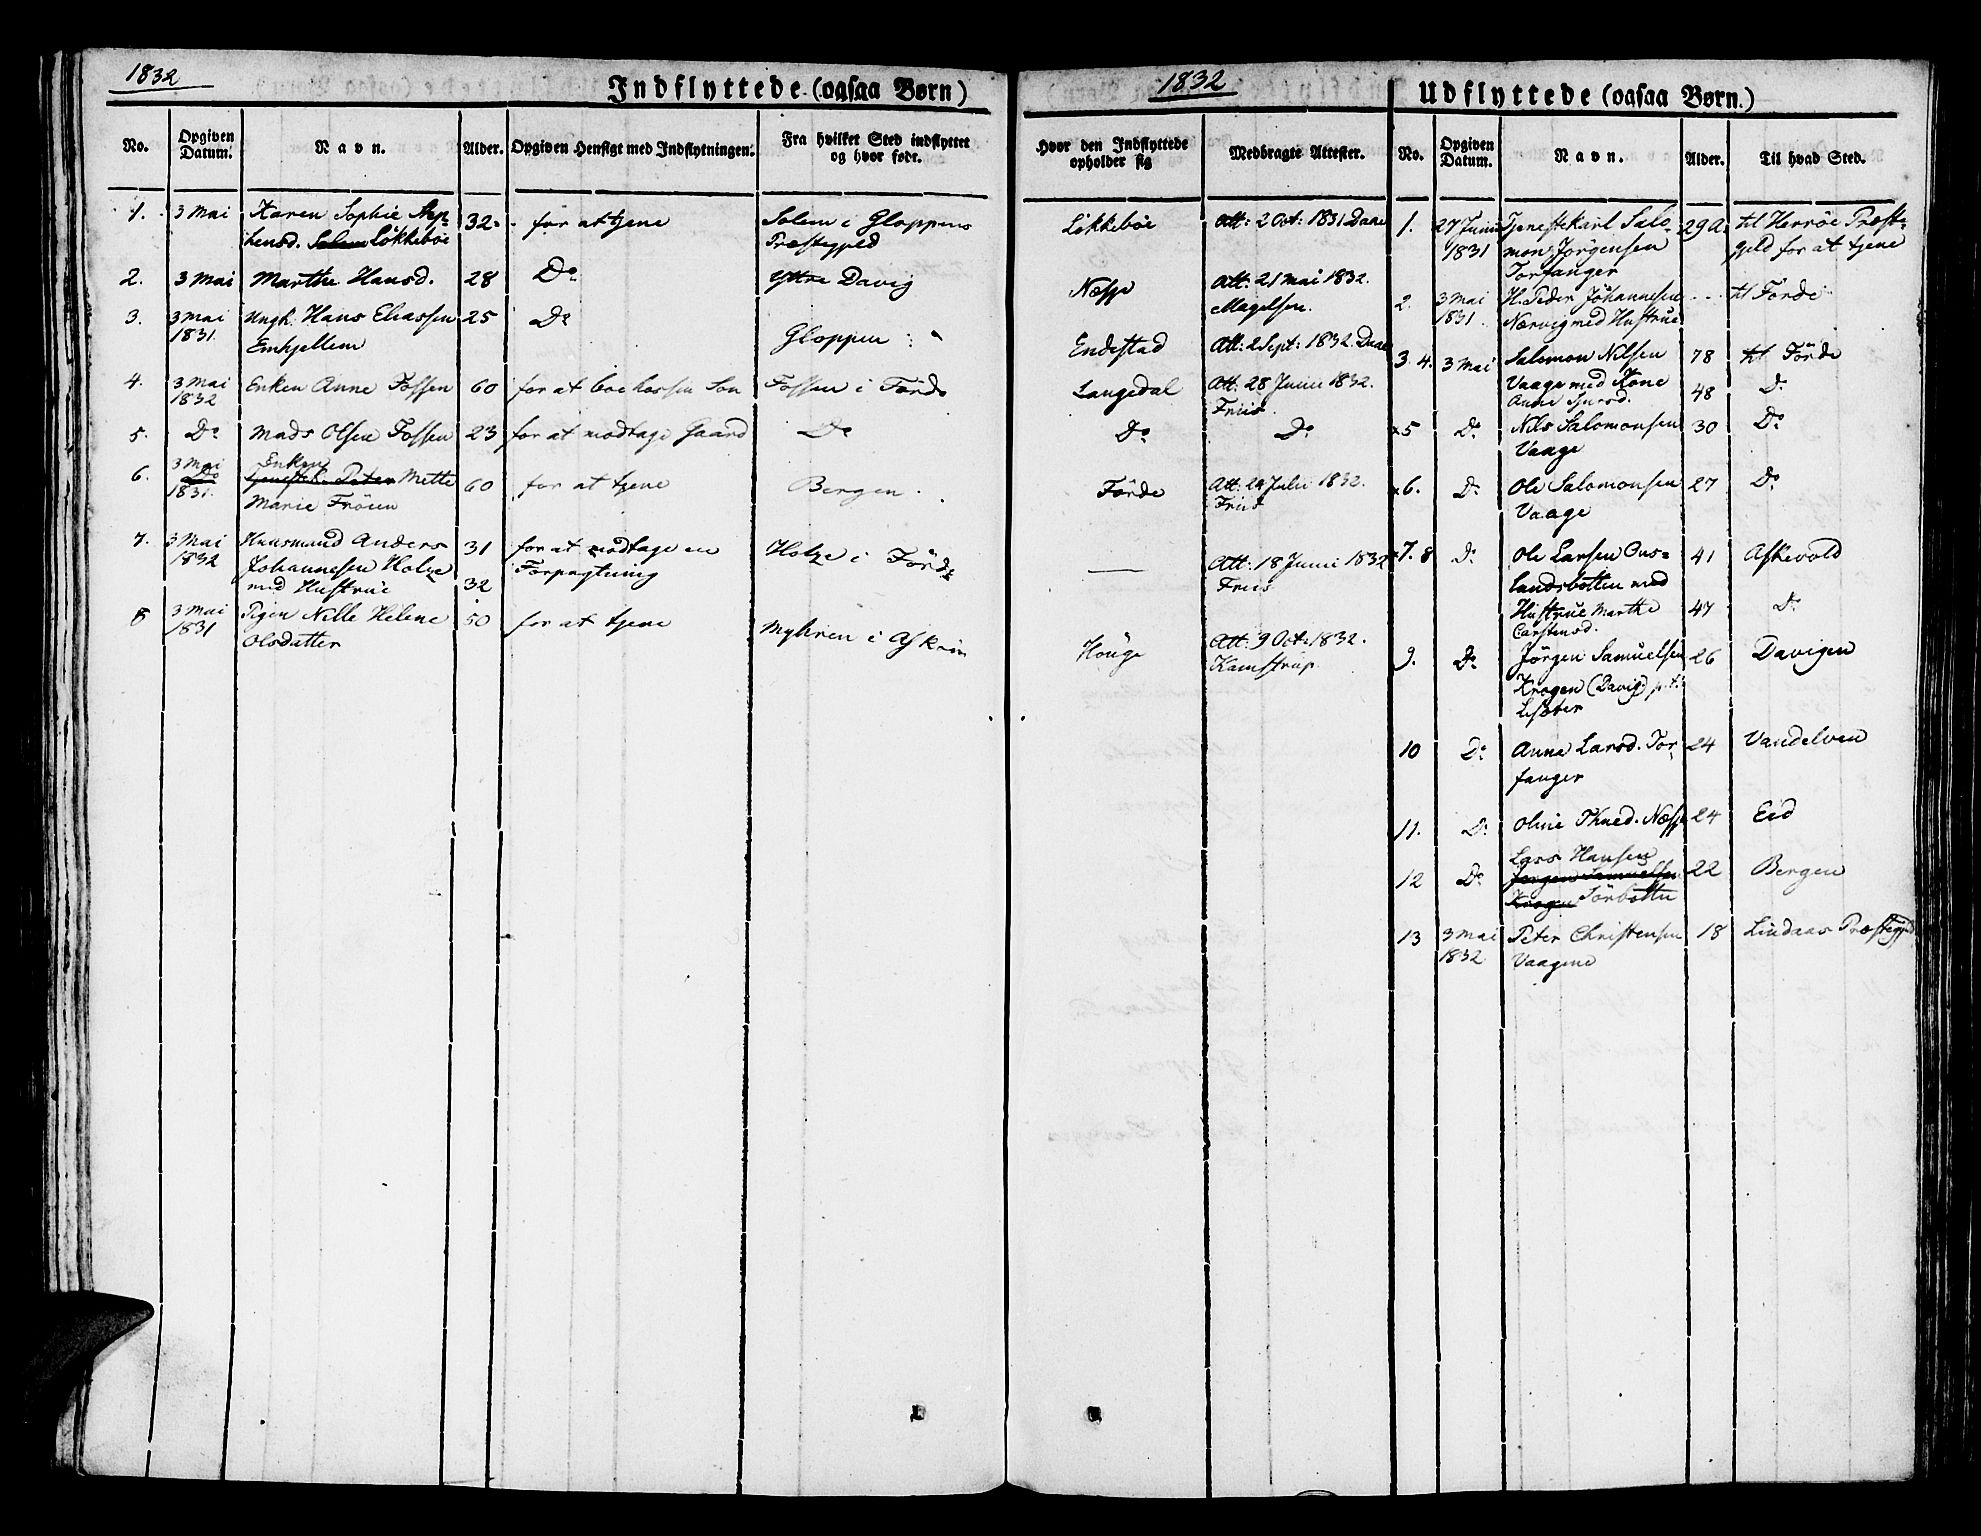 1832
Indflyttede (ogsaa Børn)
No. Opgiven Datum. Navn. Alder. Opgiven Hensigt med Indflytningen. Fra hvilket Sted indflyttet og hvor født.
1. 3 Mai Karen Sophie Step= 32. for at tjene Solem i Gloppens
hensd. Solem Løkkebøe Præstegjeld
2. 3 Mai Marthe Hansd. 28 Do Yttre Davig
3. 3 Mai Ungk. Hans Eliassen 25 Do Gloppen
1831 Emhjellem
4. 3 Mai Enken Anne Fossen 60 for at boe hos sin Søn Fossen i Förde
1832
5. Do Mads Olsen Fossen 23 for at modtage Gaard Do
6. 3 Mai Enken
Do Tjenestek. Peter Mette 60 for at tjene Bergen
1831. Marie Fröien
7. 3 Mai Huusmand Anders 31 for at modtage en Holze i Förde
1832 Johannesen Holze Forpagtning
med Hustrue 32
8 3 Mai Pigen Nille Helene 50 for at tjene Myhren i Askvin
1831 Olsdatter
1832
Udflyttede (ogsaa Børn.)
Hvor den Indflyttede opholder sig Medbragte Attester. No. Opgiven Datum. Navn. Alder. Til hvad Sted.
Løkkebøe Att: 2 Oct: 1831 Daae
Næsje Att: 21 Mai 1832.
Magelsen.
Endestad Att: 2 Sept: 1832 Daae
Langedal Att: 28 Junii 1832.
Friis.
Do Do
Förde Att: 20 Julii 1832.
Friis
— Att: 18 Junii 1832
Friis
Höuge Att: 9 Oct: 1832.
Kamstrup
1. 27 Junii Tjenestekarl Salo= 29 A. til Herröe Præste=
1831 mon Jörgensen gjeld for at tjene
Torfanger
2. 3 Mai H. Peder Johannesen til Förde
1831. Nærvig med Hustrue
3. 4. 3 Mai Salomon Nilsen 78 til Förde
Vaage med Kone 48 Do
Anne Sjursd.
x5 Do Nils Salomonsen 30 Do
Vaage
x6. Do Ole Salomonsen 27 Do
Vaage
7. 8 Do Ole Larsen Ous= 41 Askevold
landsbotten med
Hustrue Marthe 47 Do
Carstensd.
9. Do Jörgen Samuelsen 26 Davigen
Krogen (Davig) p.t.
Lisæter
10 Do Anna Larsd. Tor= 24 Vandelven
fanger
11. Do Oline Thued. Næsje 24 Eid
Lars Hansen
12 Do Jörgen Samuelsen 22 Bergen
Krogen Sörbotten
13 3 Mai Peter Christensen 18 Lindaas Præstegjeld
1832 Vaagene